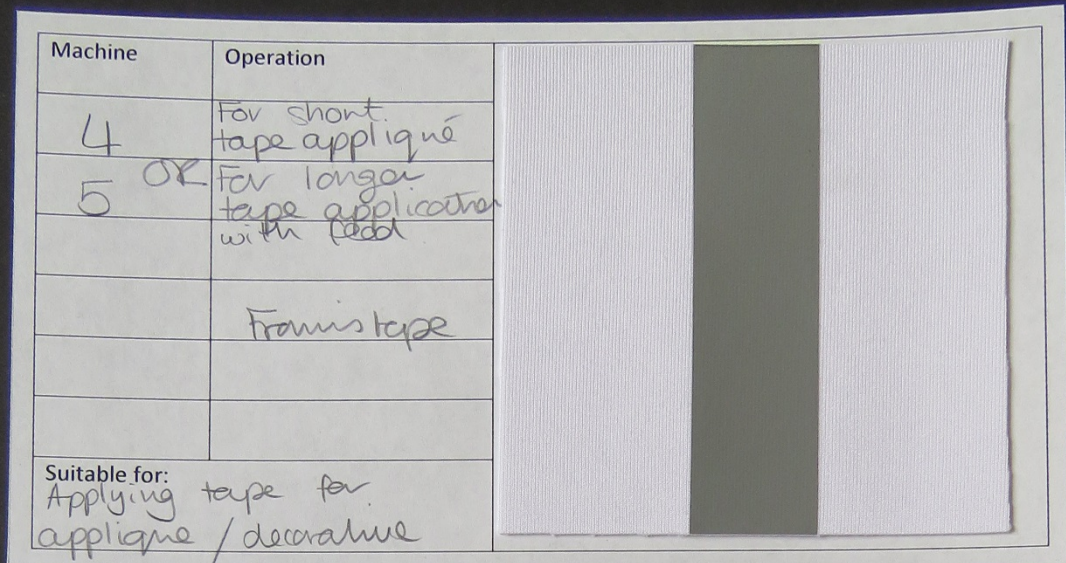 Machine Operation
4 For short
tape appliqué
OR
5 For longer
tape application
with feed
Framis tape
Suitable for:
Applying tape for
applique / decorative